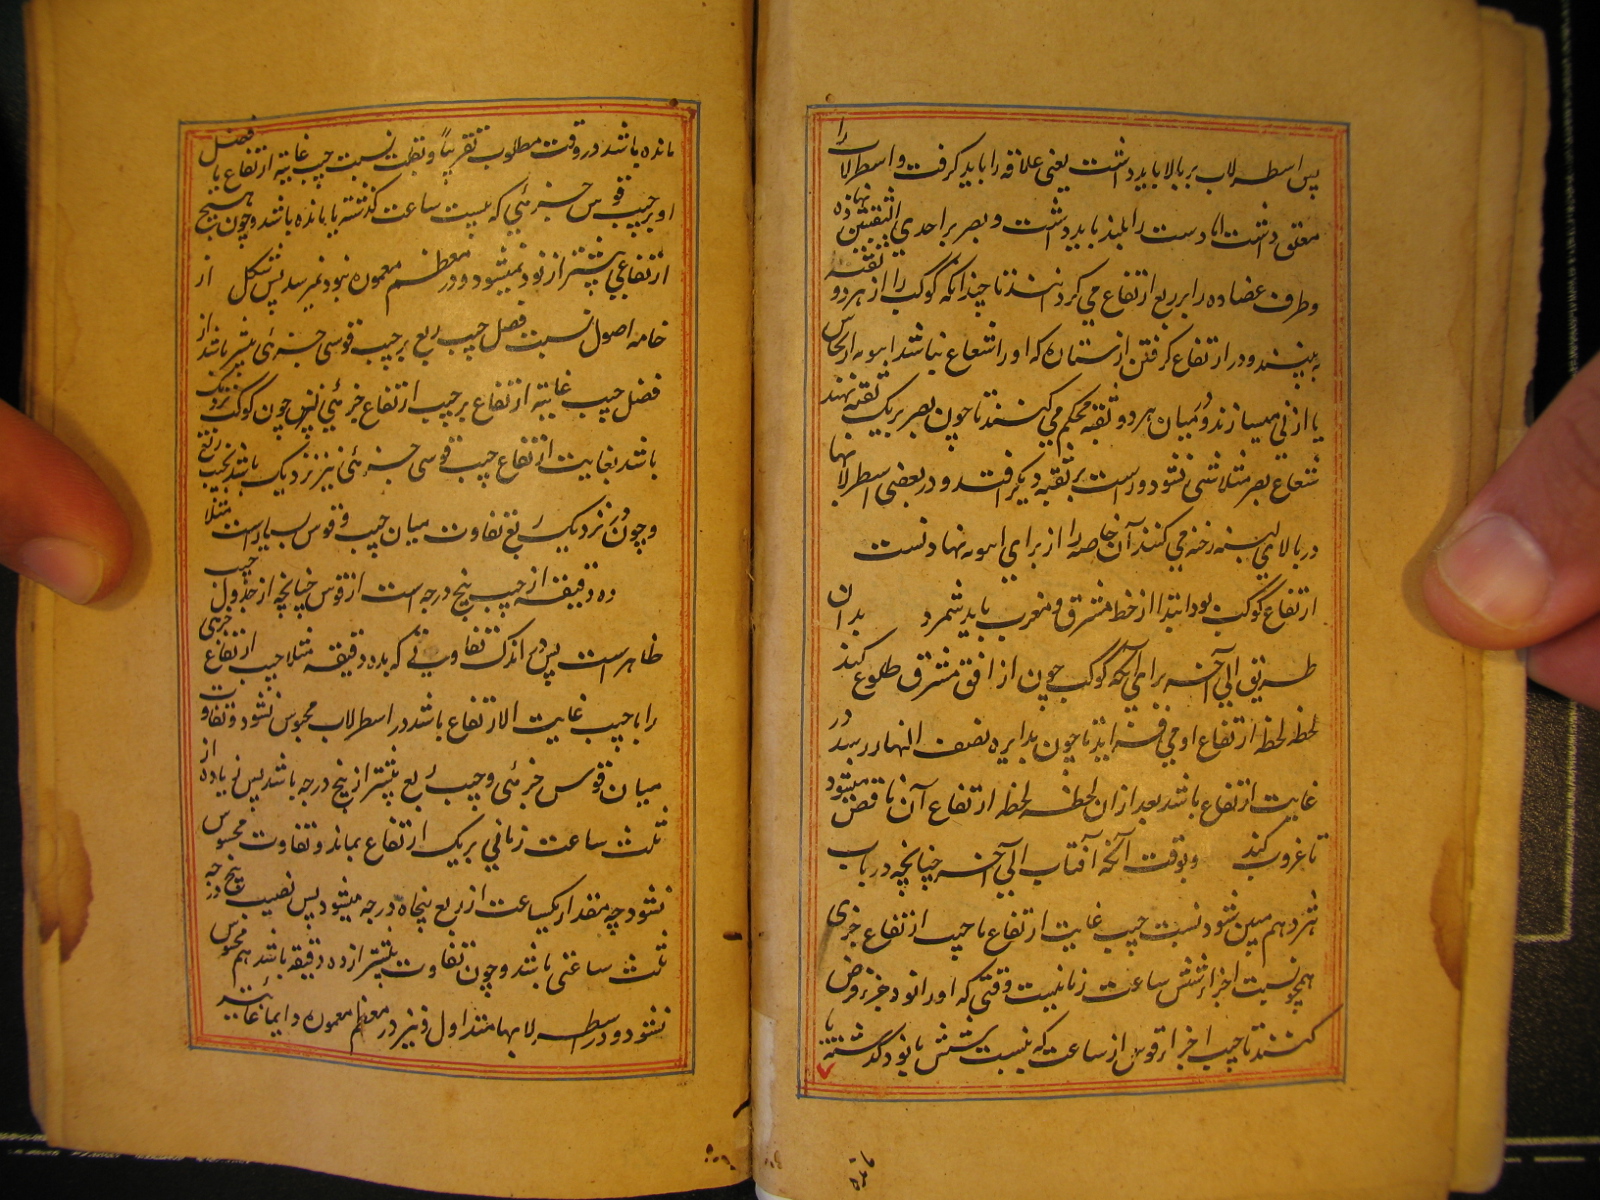 پس اسطرلاب بر بالا باید داشت یعنی علاقه را باید گرفت و اسطرلاب را
معلق داشت اما دست را بلند باید داشت و بصر بر احدی الثقبتین نهاده
و طرف عضاده را بر ربع ارتفاع می گردانند تا چندانکه کوکب را از هر دو ثقبه
ببینند و در ارتفاع گرفتن از ستاره که او را شعاع نباشد انبوبه از نحاس
یا از نی میسازند و در میان هر دو ثقبه محکم می کنند تا چون بصر بر یک ثقبه نهند
شعاع بصر متلاشی نشود و راست بر ثقبه دیگر افتد و در بعضی اسطرلابها
در بالای لبنه رخنه می کنند آن خاصه را از برای انبوبه نهادنست
ارتفاع کوکب بود ابتدا از خط مشرق و مغرب باید شمرد بدان
طریق الی آخره برای آنکه کوکب چون از افق مشرق طلوع کند
لحظه لحظه ارتفاع او می افزاید تا چون بدایره نصف النهار رسد در
غایت ارتفاع باشد بعد از ان لحظه لحظه ارتفاع آن ناقص میشود
تا غروب کند و بوقت آنکه آفتاب الی آخره چنانچه در باب
نزدهم مبین شود نسبت جیب غایت ارتفاع با جیب ارتفاع جزی
همچو نسبت اجزاء شش ساعت زمانیست وقتی که او را نود جزء فرض
کنند تا جیب اجزاء قوس از ساعت که نسبت شش با نود گذشته یا
مانده
مانده باشد در وقت مطلوب تقریباً و نسبت جیب غایة ارتفاع با فضل
او بر جیب قوس جزئی که بیست ساعت گذشته یا مانده باشد و چون هیچ
ارتفاعی بیشتر از نود نمیشود و در معظم معموره نبود نمیرسد پس شکل از
خامه اصول نسبت فضل جیب ربع بر جیب قوسی جزئی بیشتر باشد از
فضل جیب غایة ارتفاع بر جیب ارتفاع جزئی پس چون کوکب نزدیک
باشد بغایت ارتفاع جیب قوسی جزئی نیز نزدیک باشد بجیب ربع
و چون در نزدیک ربع تفاوت میان جیب و قوس بسیار است مثلا
ده دقیقه از جیب پنج درجه است از قوس چنانچه از جدول جیب
ظاهر است پس در اندک تفاوتی که بده دقیقه مثلا جیب ارتفاع جزی
را با جیب غایت الارتفاع باشد در اسطرلاب محسوس نشود و تفاوت
میان قوس جزئی و جیب ربع بیشتر از پنج درجه باشد پس زیاده از
ثلث ساعت زمانی بر یک ارتفاع بماند و تفاوت محسوس
نشود چه مقدار یکساعت از ربع پنجاه درجه میشود پس نصیب پنج درجه
ثلث ساعتی باشد و چون تفاوت بیشتر از ده دقیقه باشد هم محسوس
نشود و در اسطرلابها متداول و نیز در معظم معموره دایما غایة